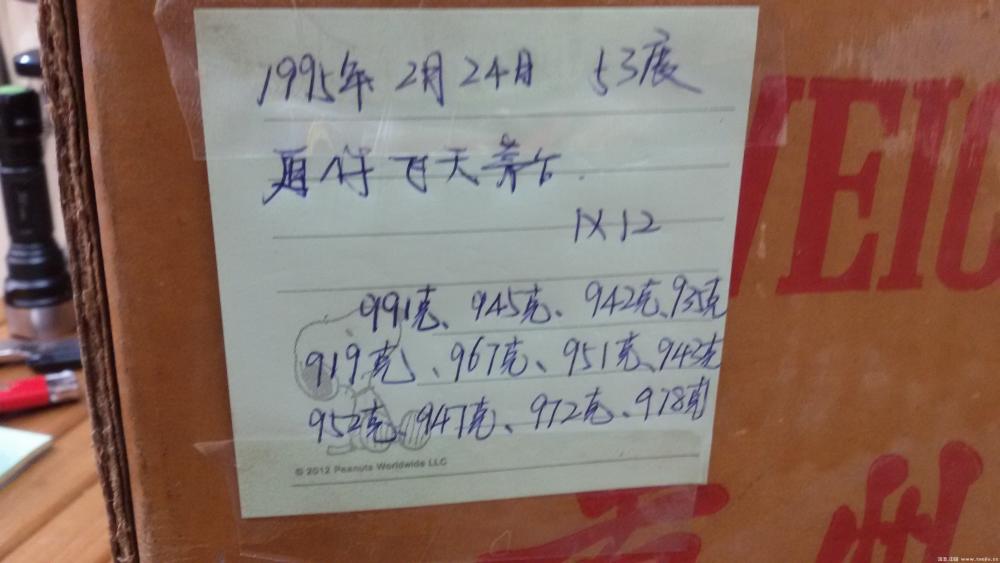 1995年 2月24日 53度
飞天茅台.
1×12
991克、945克、942克、935克
919克、967克、951克、943克
952克、947克、972克、978克
© 2012 Peanuts Worldwide LLC
VEIC
州